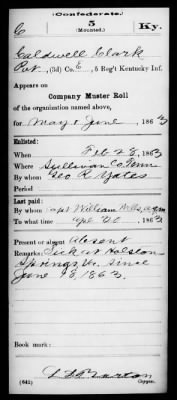 (Confederate.)
C 5 Ky.
(Mounted.)
Caldwell Clark
Pvt, (3d) Co. E, 5 Reg't Kentucky Inf.
Appears on
Company Muster Roll
of the organization named above,
for May & June, 1863
Enlisted:
When Feb 28, 1863
Where Sullivan Co Tenn
By whom Geo R. Yates
Period
Last paid:
By whom Capt William
To what time Apl 30, 1863
Present or absent Absent
Remarks: Sick at Holston
Springs Va. since
June 18, 1863.
Book mark:
(642) Barton
Copyist.